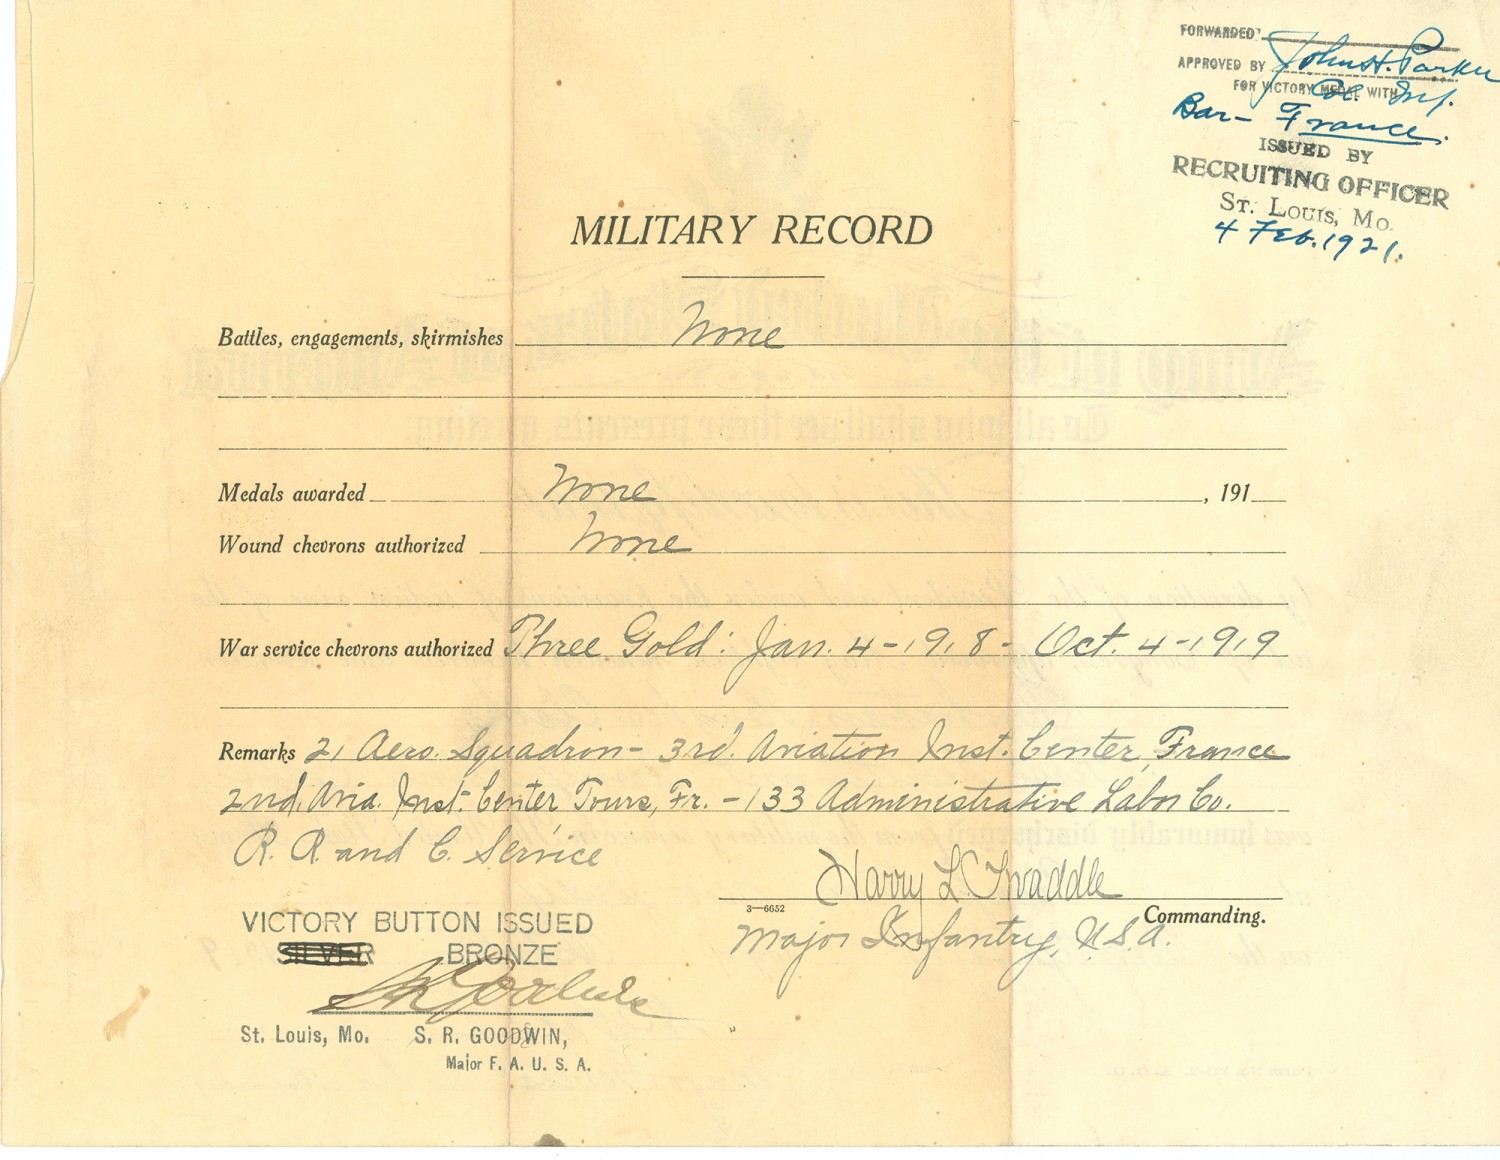 FORWARDED
APPROVED BY John H. Parker
FOR VICTORY MEDAL WITH
Col. Inf.
Bar- France.
ISSUED BY
RECRUITING OFFICER
St. Louis, Mo.
4 Feb. 1921.
MILITARY RECORD
Battles, engagements, skirmishes None
Medals awarded None , 191
Wound chevrons authorized None
War service chevrons authorized Three Gold: Jan. 4-1918- Oct. 4-1919
Remarks 21 Aero. Squadron- 3rd. Aviation Inst. Center, France
2nd. Avia. Inst. Center Tours, Fr. - 133 Administrative Labor Co.
R. R. and C. Service
Harry L. Twaddle
3—6652
Commanding.
Major Infantry, U.S.A.
VICTORY BUTTON ISSUED
SILVER BRONZE
St. Louis, Mo. S. R. GOODWIN,
Major F. A. U. S. A.